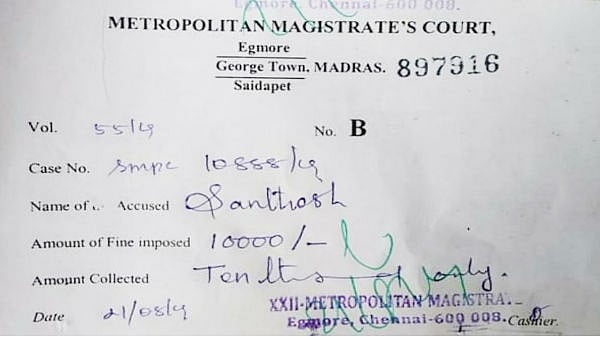 Egmore, Chennai-600 008.
METROPOLITAN MAGISTRATE'S COURT,
Egmore
George Town, MADRAS. 897916
Saidapet
Vol. 55/19 No. B
Case No. smpc 10888/19
Name of Accused Santhosh
Amount of Fine imposed 10000/-
Amount Collected Ten only.
Date 21/08/19
XXII-METROPOLITAN MAGISTRA
Egmore, Chennai-600 008. Cashier.